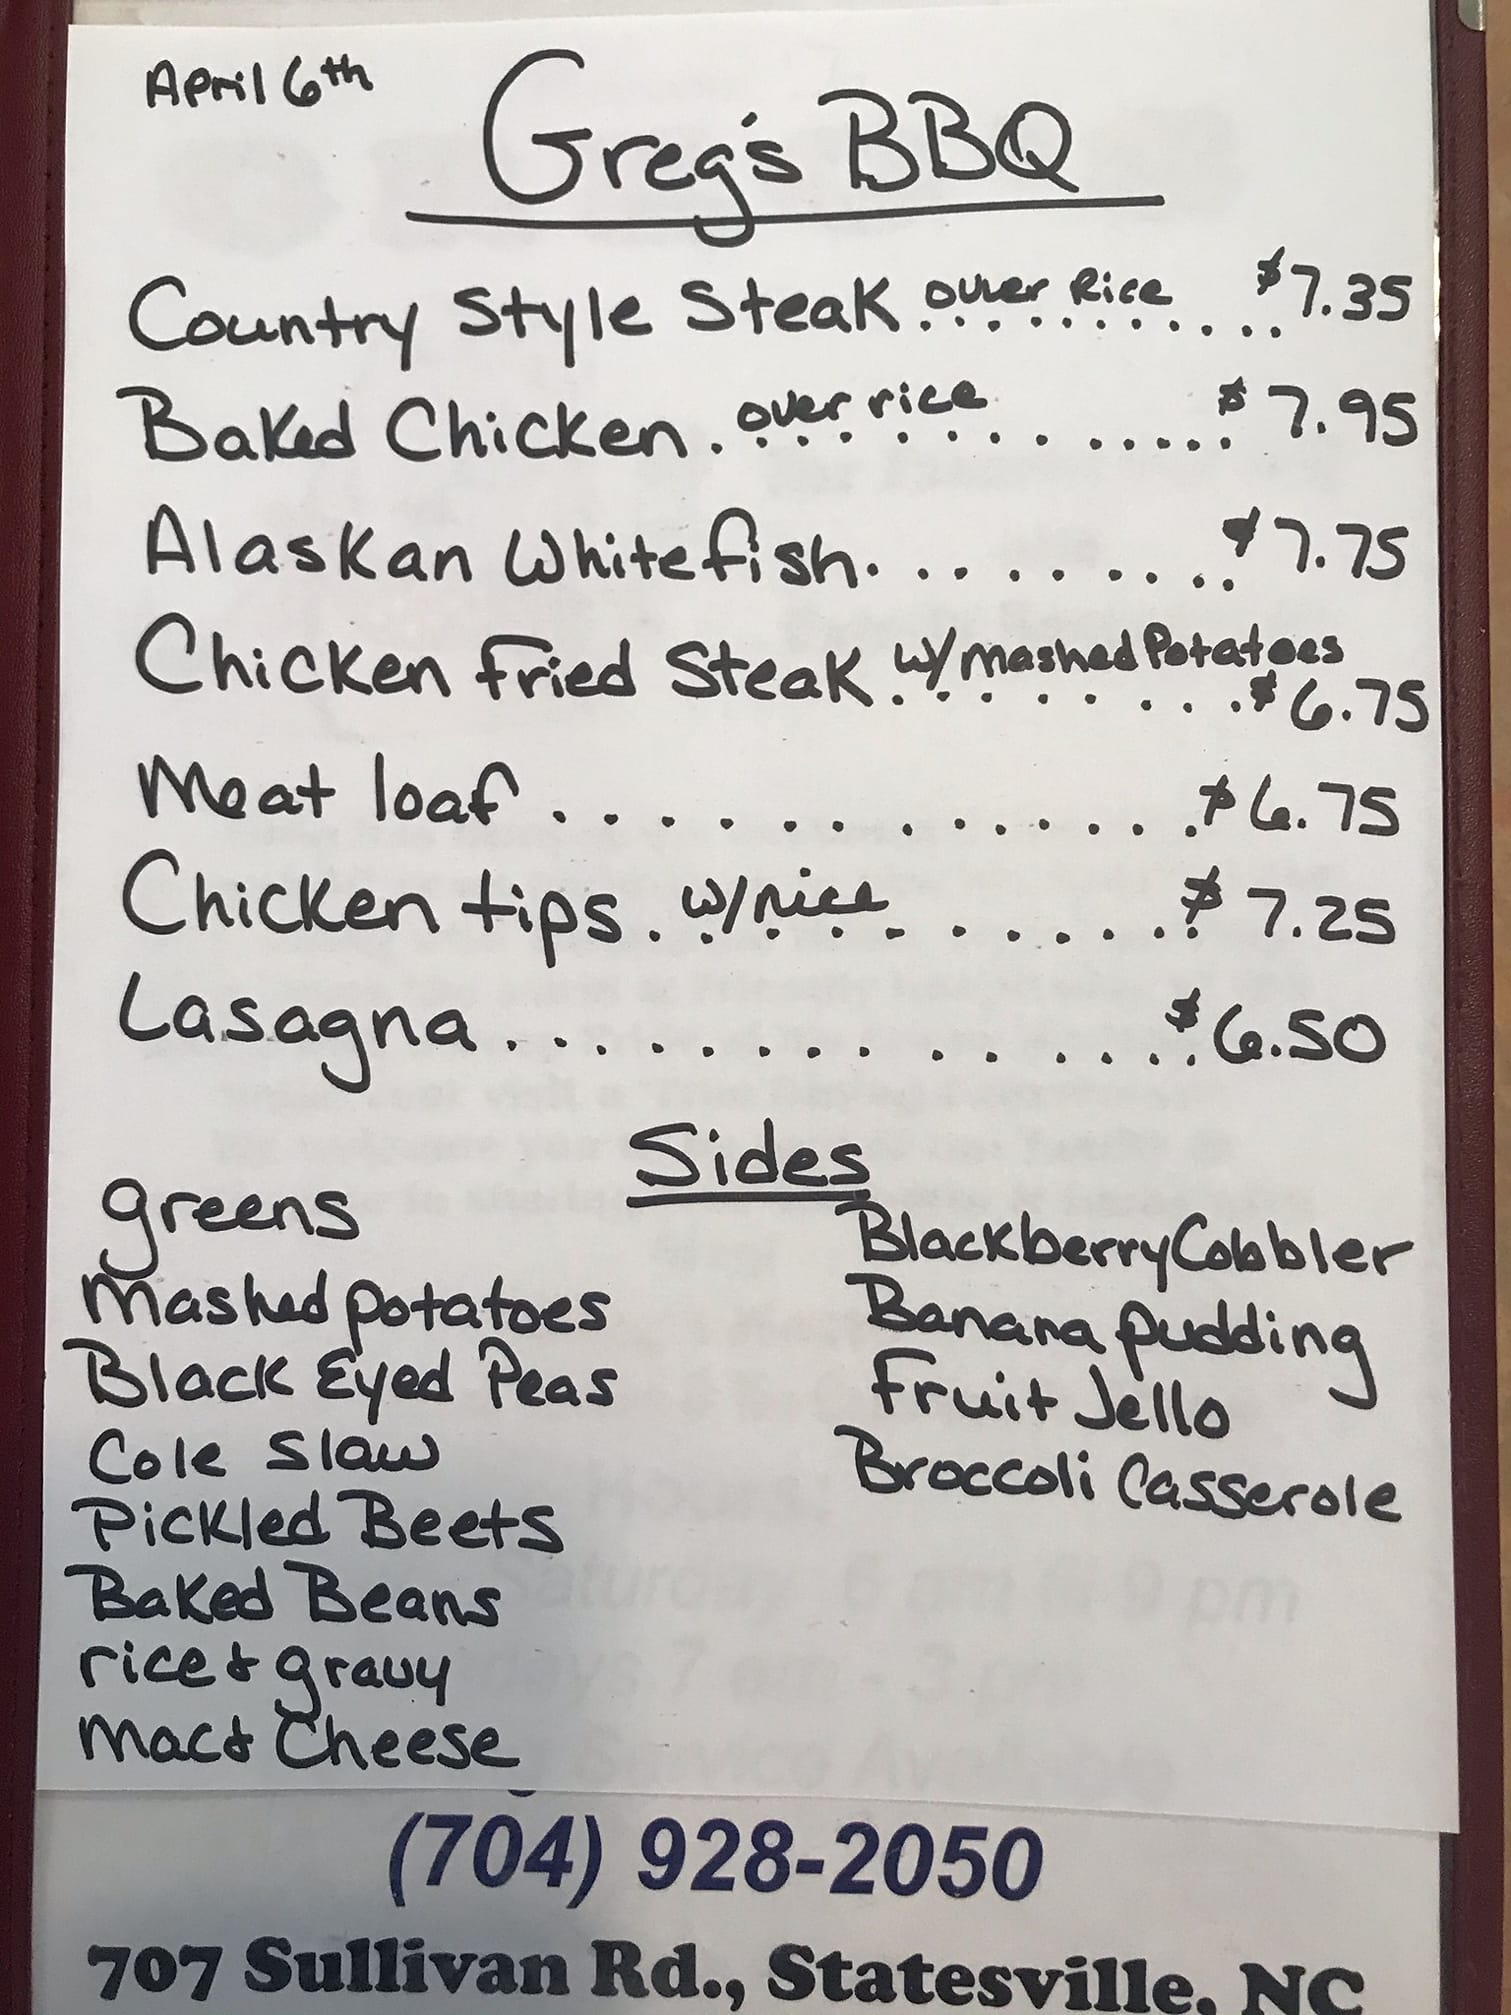 April 6th
Greg's BBQ
Country Style Steak over Rice .......... $7.35
Baked Chicken. over rice ............ $7.95
Alaskan Whitefish. ........ $7.75
Chicken Fried Steak w/mashed Potatoes
........ $6.75
Meat loaf ............ $6.75
Chicken tips. w/rice ......... $7.25
Lasagna.............. $6.50
Sides
greens
Mashed potatoes
Black Eyed Peas
Cole Slaw
Pickled Beets
Baked Beans
rice & gravy
Mac & Cheese
Blackberry Cobbler
Banana pudding
Fruit Jello
Broccoli Casserole
(704) 928-2050
707 Sullivan Rd., Statesville, NC